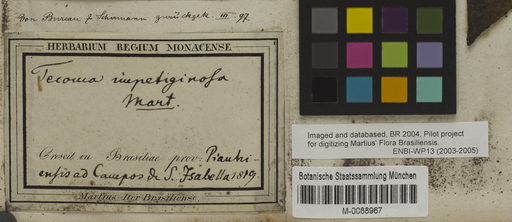 Von Bureau & Schumann zurückgek. III. 97.
HERBARIUM REGIUM MONACENSE.
Tecoma impetiginosa
Mart.
Crescit in Brasiliae prov. Piauhi-
ensis ad Campos de S. Isabella 1819
Martius Iter Brasiliense.
Imaged and databased, BR 2004, Pilot project
for digitizing Martius' Flora Brasiliensis.
ENBI-WP13 (2003-2005)
Botanische Staatssammlung München
M-0088967